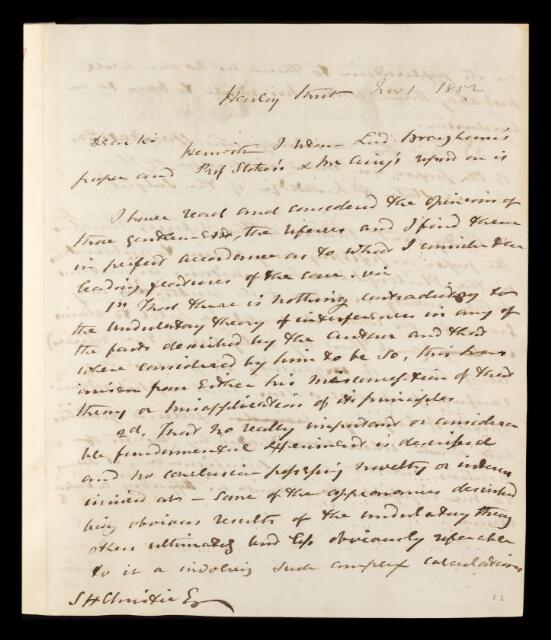 Harley Street Nov 1 1852
Dear Sir
Herewith I return Lord Brougham's
paper and Prof Stokes's & Mr Airy's report on it
I have read and considered the opinions of
those gentlemen, the referees and I find them
in perfect accordance as to what I consider the
leading features of the case. viz
1st That there is nothing contradictory to
the undulatory theory of interferences in any of
the facts described by the author and that
where considered by him to be so, this has
arisen from Either his misconception of that
theory or misapplication of its principles
2d, That no really important or considera
ble fundamental experiment is described
and no conclusion possessing novelty or
arrived at – some of the appearances described
being obvious results of the undulatory theory
others ultimately and less obviously referable
to it a involving such complex calculations
S H Christie Esq